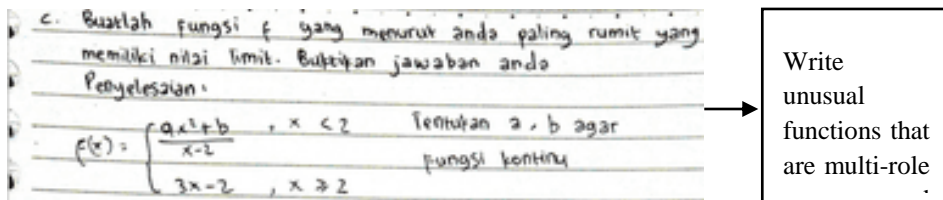 c. Buatlah fungsi f yang menurut anda paling rumit yang
memiliki nilai limit. Buktikan jawaban anda
Penyelesaian:
f(x) = { ax²+b / x-2 , x < 2 Tentukan a, b agar
fungsi kontinu
3x-2 , x ≥ 2
Write
unusual
functions that
are multi-role